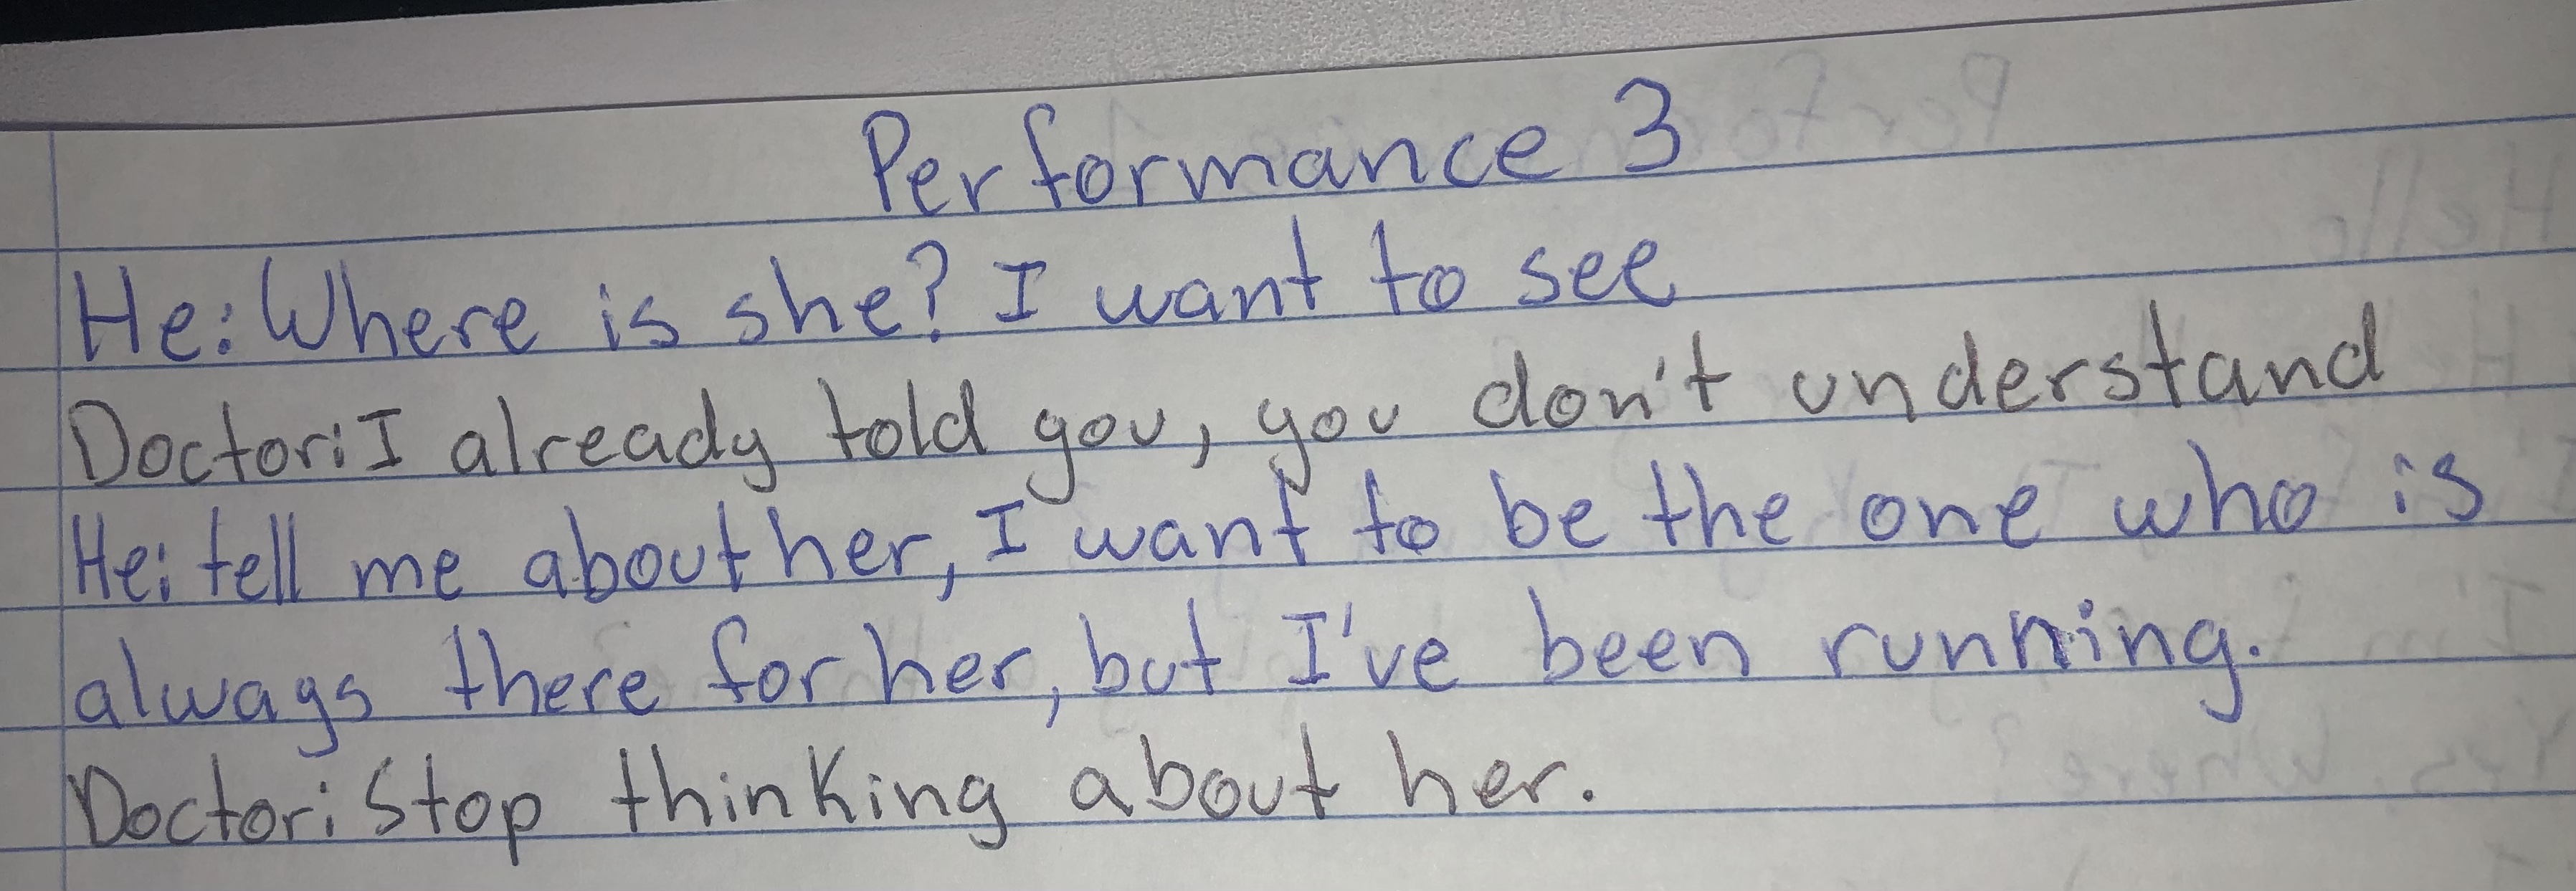 Performance 3
He: Where is she? I want to see
Doctor: I already told you, you don't understand
He: tell me about her, I want to be the one who is
always there for her, but I've been running.
Doctor: Stop thinking about her.